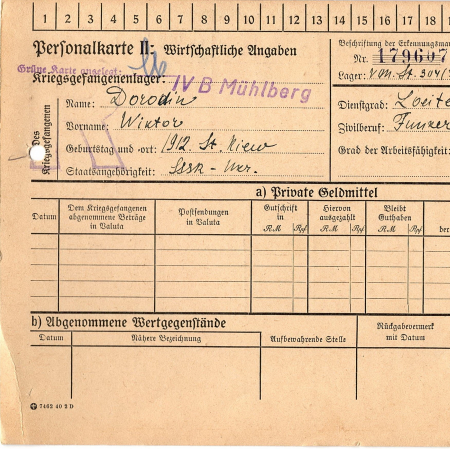 1 2 3 4 5 6 7 8 9 10 11 12 13 14 15 16 17 18
Personalkarte II: Wirtschaftliche Angaben
Beschriftung der Erkennungsma
Nr. 179607
Grüne Karte angelegt:
Kriegsgefangenenlager: IV B Mühlberg
Lager: St. 304/
Des Kriegsgefangenen
Name: Dorodin
Vorname: Wiktor
Geburtstag und -ort: 1912. St. Kiew
Staatsangehörigkeit:
Dienstgrad: Leite
Zivilberuf: Funker
Grad der Arbeitsfähigkeit:
a) Private Geldmittel
Datum
Dem Kriegsgefangenen abgenommene Beträge in Valuta
Postsendungen in Valuta
Gutschrift in
RM Rpf
Hiervon ausgezahlt
RM Rpf
Bleibt Guthaben
RM Rpf
ber
b) Abgenommene Wertgegenstände
Datum
Nähere Bezeichnung
Aufbewahrende Stelle
Rückgabevermerk mit Datum
7462 40 2 D